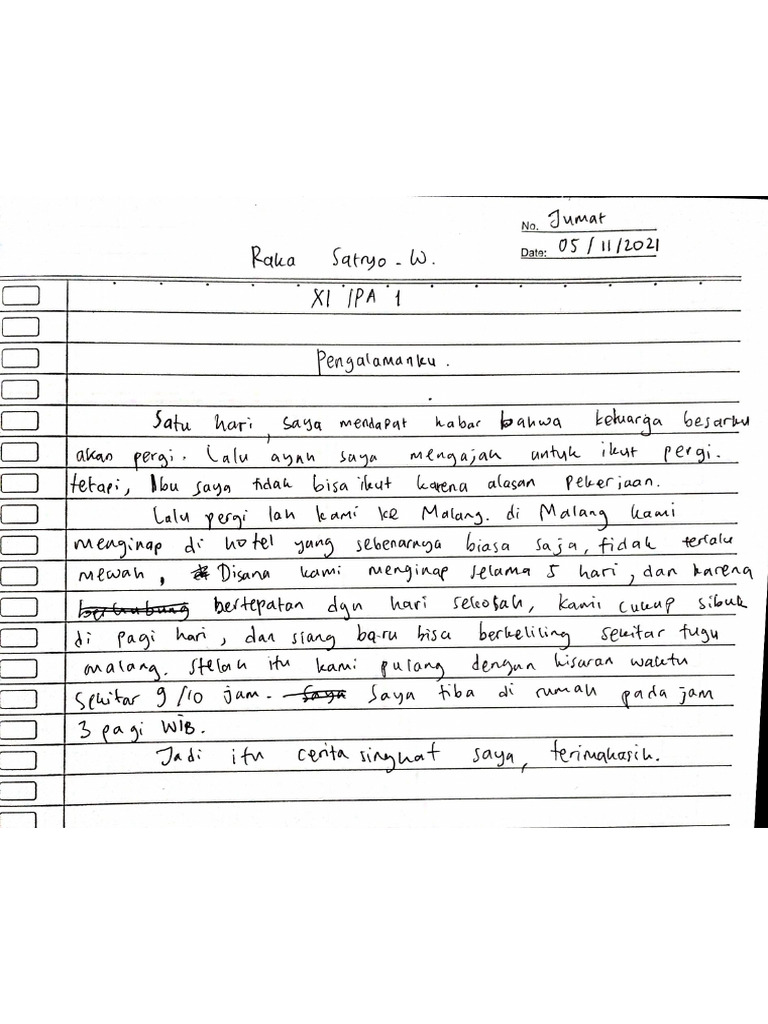 No. Jumat
Date: 05/11/2021
Raka Satryo-W.
XI IPA 1
Pengalamanku.
Satu hari, saya mendapat kabar bahwa keluarga besarku
akan pergi. Lalu ayah saya mengajak untuk ikut pergi.
tetapi, Ibu saya tidak bisa ikut karena alasan pekerjaan.
Lalu pergi lah kami ke Malang. di Malang kami
menginap di hotel yang sebenarnya biasa saja, tidak terlalu
mewah, Disana kami menginap selama 5 hari, dan karena
berhubung bertepatan dgn hari sekolah, kami cukup sibuk
di pagi hari, dan siang baru bisa berkeliling sekitar tugu
malang. Stelah itu kami pulang dengan kisaran waktu
sekitar 9/10 jam. Saya Saya tiba di rumah pada jam
3 pagi WIB.
Jadi itu cerita singkat saya, terimakasih.